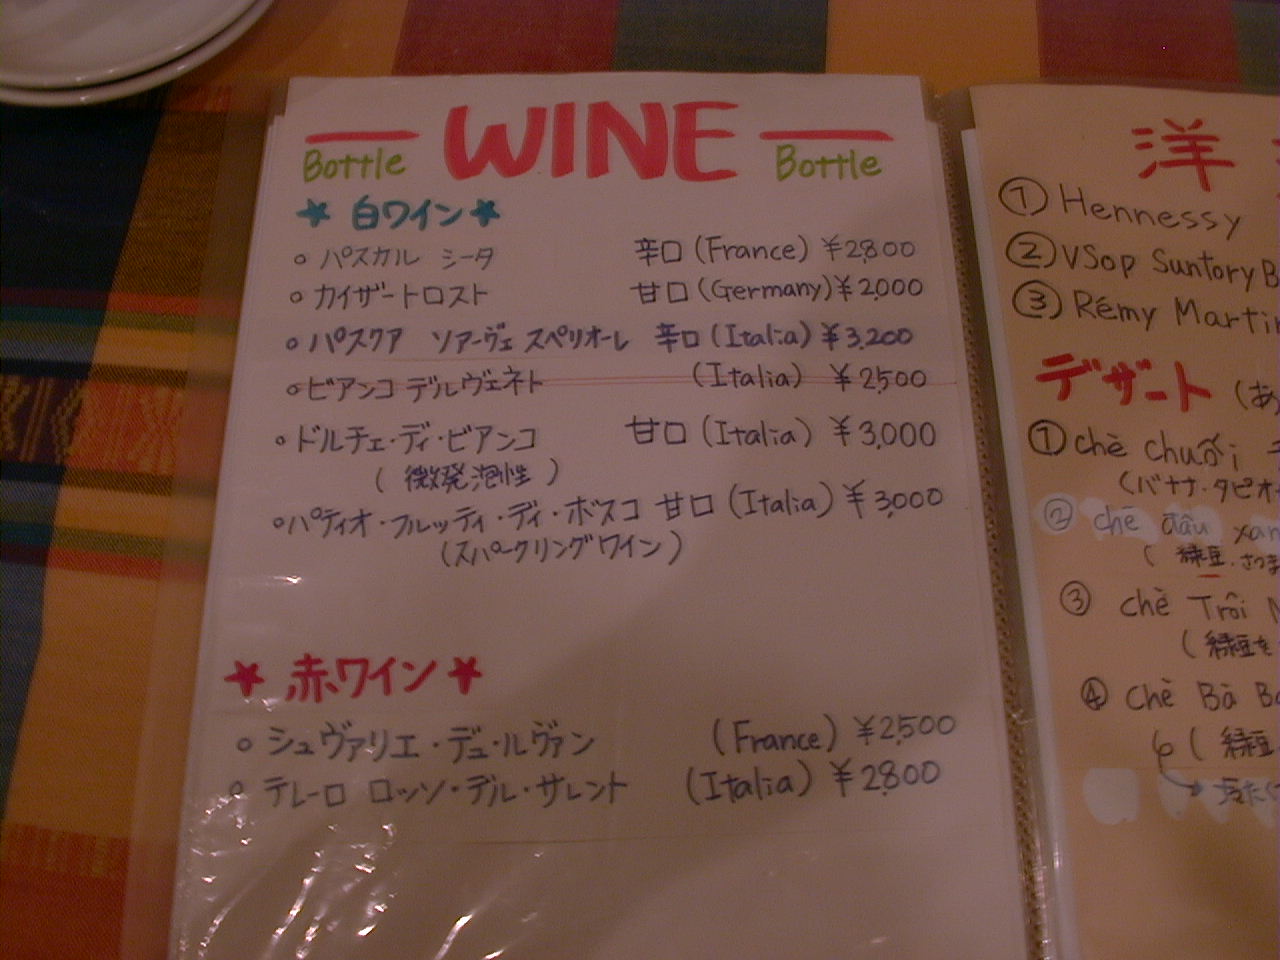 WINE
Bottle Bottle
★ 白ワイン ★
○ パスカル シータ 辛口 (France) ¥2,800
○ カイザートロスト 甘口 (Germany) ¥2,000
○ パスクア ソアーヴェ スペリオーレ 辛口 (Italia) ¥3,200
○ ビアンコ デルヴェネト (Italia) ¥2,500
○ ドルチェ・ディ・ビアンコ 甘口 (Italia) ¥3,000
(微発泡性)
○ パティオ・フルッティ・ディ・ボスコ 甘口 (Italia) ¥3,000
(スパークリングワイン)
★ 赤ワイン ★
○ シュヴァリエ・デュ・ルヴァン (France) ¥2,500
○ テレーロ ロッソ・デル・サレント (Italia) ¥2,800
洋
① Hennessy
② VSop Suntory
③ Rémy Martin
デザート (あ
① chè chuối
(バナナ・タピオ
② chè đậu xan
(緑豆・さつま
③ chè Trôi
(緑豆を
④ Chè Bà Ba
(緑豆
冷たく